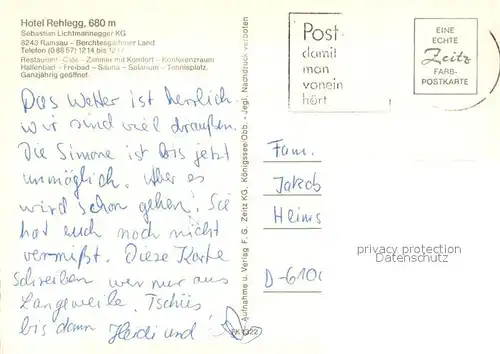 Hotel Rehlegg, 680 m
Sebastian Lichtmannegger KG
8243 Ramsau - Berchtesgadener Land
Telefon (0 86 57) 1214 bis 1217
Restaurant - Café - Zimmer mit Komfort - Konferenzraum
Hallenbad - Freibad - Sauna - Solarium - Tennisplatz
Ganzjährig geöffnet
Das Wetter ist herrlich.
wir sind viel draußen.
Die Simone ist bis jetzt
unmöglich. Aber es
wird schon gehen! Sie
hat euch noch nicht
vermißt. Diese Karte
schreiben wir nur aus
Langeweile. Tschüs
bis dann und
Aufnahme u. Verlag F. G. Zeitz KG, Königssee/Obb. - Jegl. Nachdruck verboten
Post-
damit
man
vonein
hört
EINE
ECHTE
Zeitz
FARB-
POSTKARTE
Fam.
Jakob
Heims
D-6100
privacy protection
Datenschutz